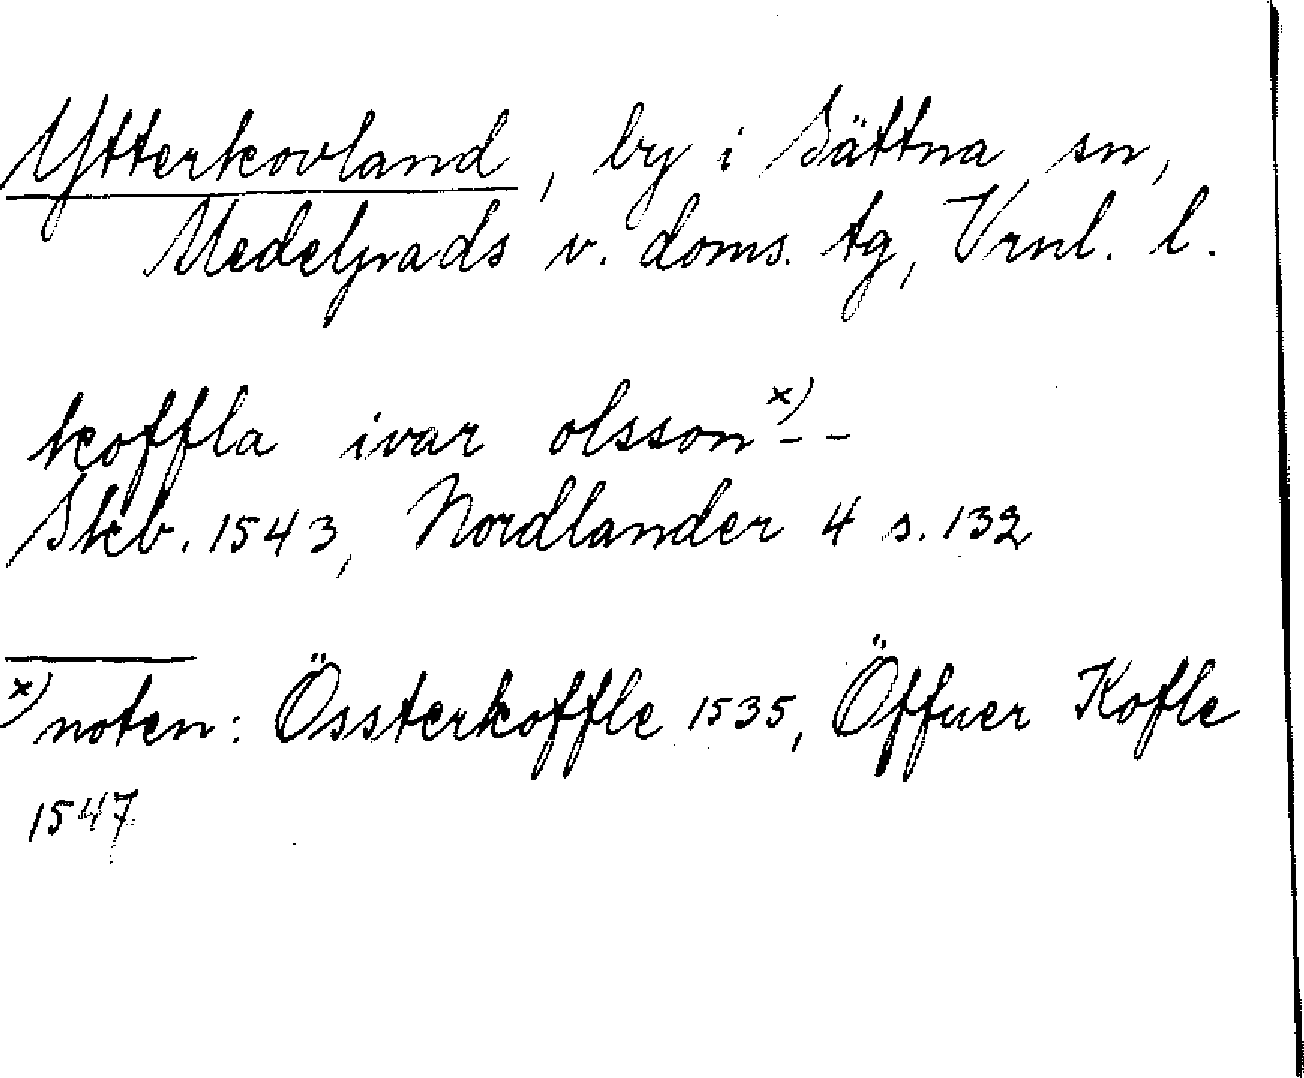 Ytterkovland, by i Sättna sn,
Medelpads v. doms. tg, Vrnl. l.
koffla ivar olsson x) - -
Skb. 1543, Nordlander 4 s. 132
x) noten: Össterkoffle 1535, Öffuer Kofle
1547